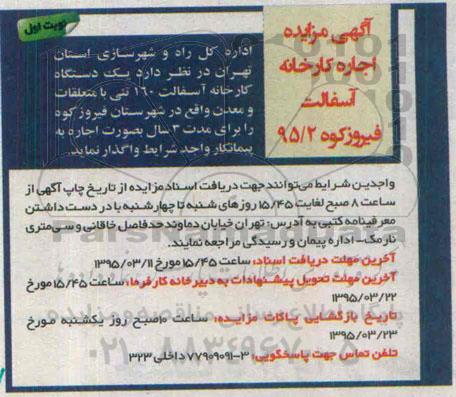 نوبت اول
آگهی مزایده
اجاره کارخانه
آسفالت
فیروزکوه ۹۵/۲
اداره کل راه و شهرسازی استان
تهران در نظر دارد یک دستگاه
کارخانه آسفالت ۱۶۰ تنی با متعلقات
و معدن واقع در شهرستان فیروزکوه
را برای مدت ۳ سال بصورت اجاره به
پیمانکار واجد شرایط واگذار نماید.
واجدین شرایط می‌توانند جهت دریافت اسناد مزایده از تاریخ چاپ آگهی از
ساعت ۸ صبح لغایت ۱۵/۴۵ روزهای شنبه تا چهارشنبه با در دست داشتن
معرفینامه کتبی به آدرس: تهران خیابان دماوند حدفاصل خاقانی و سی‌متری
نارمک - اداره پیمان و رسیدگی مراجعه نمایند.
آخرین مهلت دریافت اسناد: ساعت ۱۵/۴۵ مورخ ۱۳۹۵/۰۳/۱۱
آخرین مهلت تحویل پیشنهادات به دبیرخانه کارفرما: ساعت ۱۵/۴۵ مورخ
۱۳۹۵/۰۳/۲۲
تاریخ بازگشایی پاکات مزایده: ساعت ۱۰ صبح روز یکشنبه مورخ
۱۳۹۵/۰۳/۲۳
تلفن تماس جهت پاسخگویی: ۳-۷۷۹۰۹۰۹۱ داخلی ۳۲۳
۰۲۱-۸۸۳۴۹۶۷۰-۵